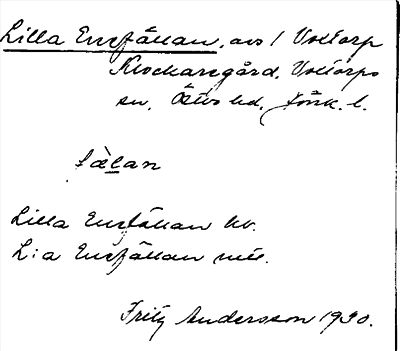 Lilla Engfällan, avs / Voltorp
Klockaregård, Voltorps
sn, Östbo hd, Jönk. l.
fàlan
Lilla Engfällan hr.
L:a Engfällan mtl.
Fritz Andersson 1930.